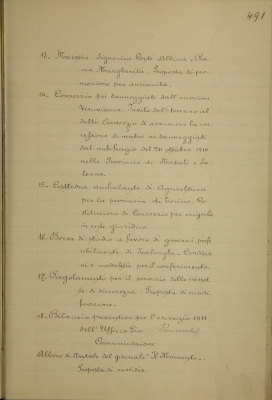 491
13. Maestre Signorine Corte Albina e Ro-
na Margherita. Proposta di pro-
mozione per anzianità.
14. Consorzio pei danneggiati dall'eruzione
Vesuviana. Invito del Governo al
detto Consorzio di assumere la con-
cessione di mutui ai danneggiati
dal nubifragio del 24 ottobre 1910
nelle Provincie di Napoli e Sa-
lerno.
15. Cattedra ambulante di Agricoltura
per la provincia di Torino. Co-
stituzione di Consorzio per erigerla
in ente giuridico.
16. Borse di studio a favore di giovani, prof.
abilmente, di Condizio-
ni e modalità pel conferimento.
17. Regolamento per il servizio delle casset-
te di sicurezza. Proposta di modi-
ficazione.
18. Bilancio preventivo per l'esercizio 1911
dell'Ufficio Pio.
Comunicazione
Albero di Natale del giornale "Il Momento".
Proposta di sussidio.